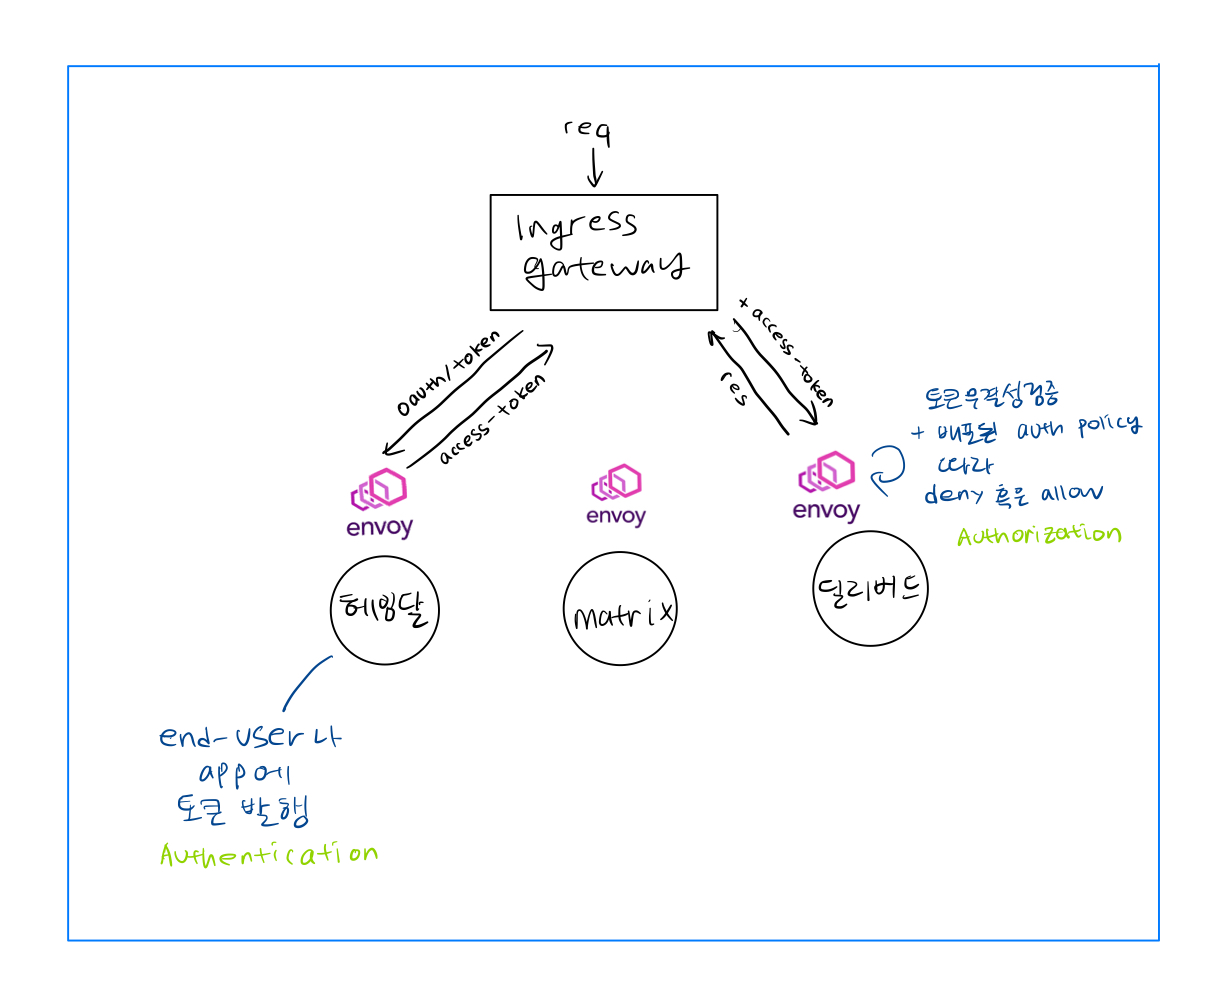 req
Ingress
gateway
oauth/token
access-token
+ access-token
res
envoy
envoy
envoy
토큰무결성검증
+ 배포된 auth policy
따라
deny 혹은 allow
Authorization
헤임달
matrix
딜리버드
end-user나
app에
토큰 발행
Authentication